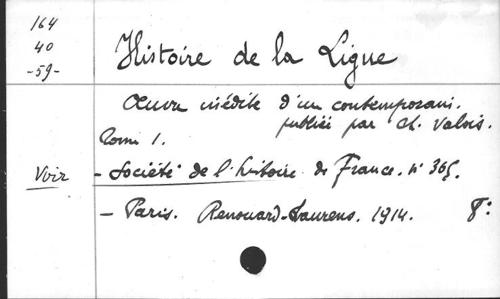 164
40
-59-
Histoire de la Ligue
Œuvre inédite d'un contemporain.
publiée par Ch. Valois.
Tome 1.
Voir
- Société de l'histoire de France. n° 365.
- Paris. Renouard-Laurens. 1914. 8°